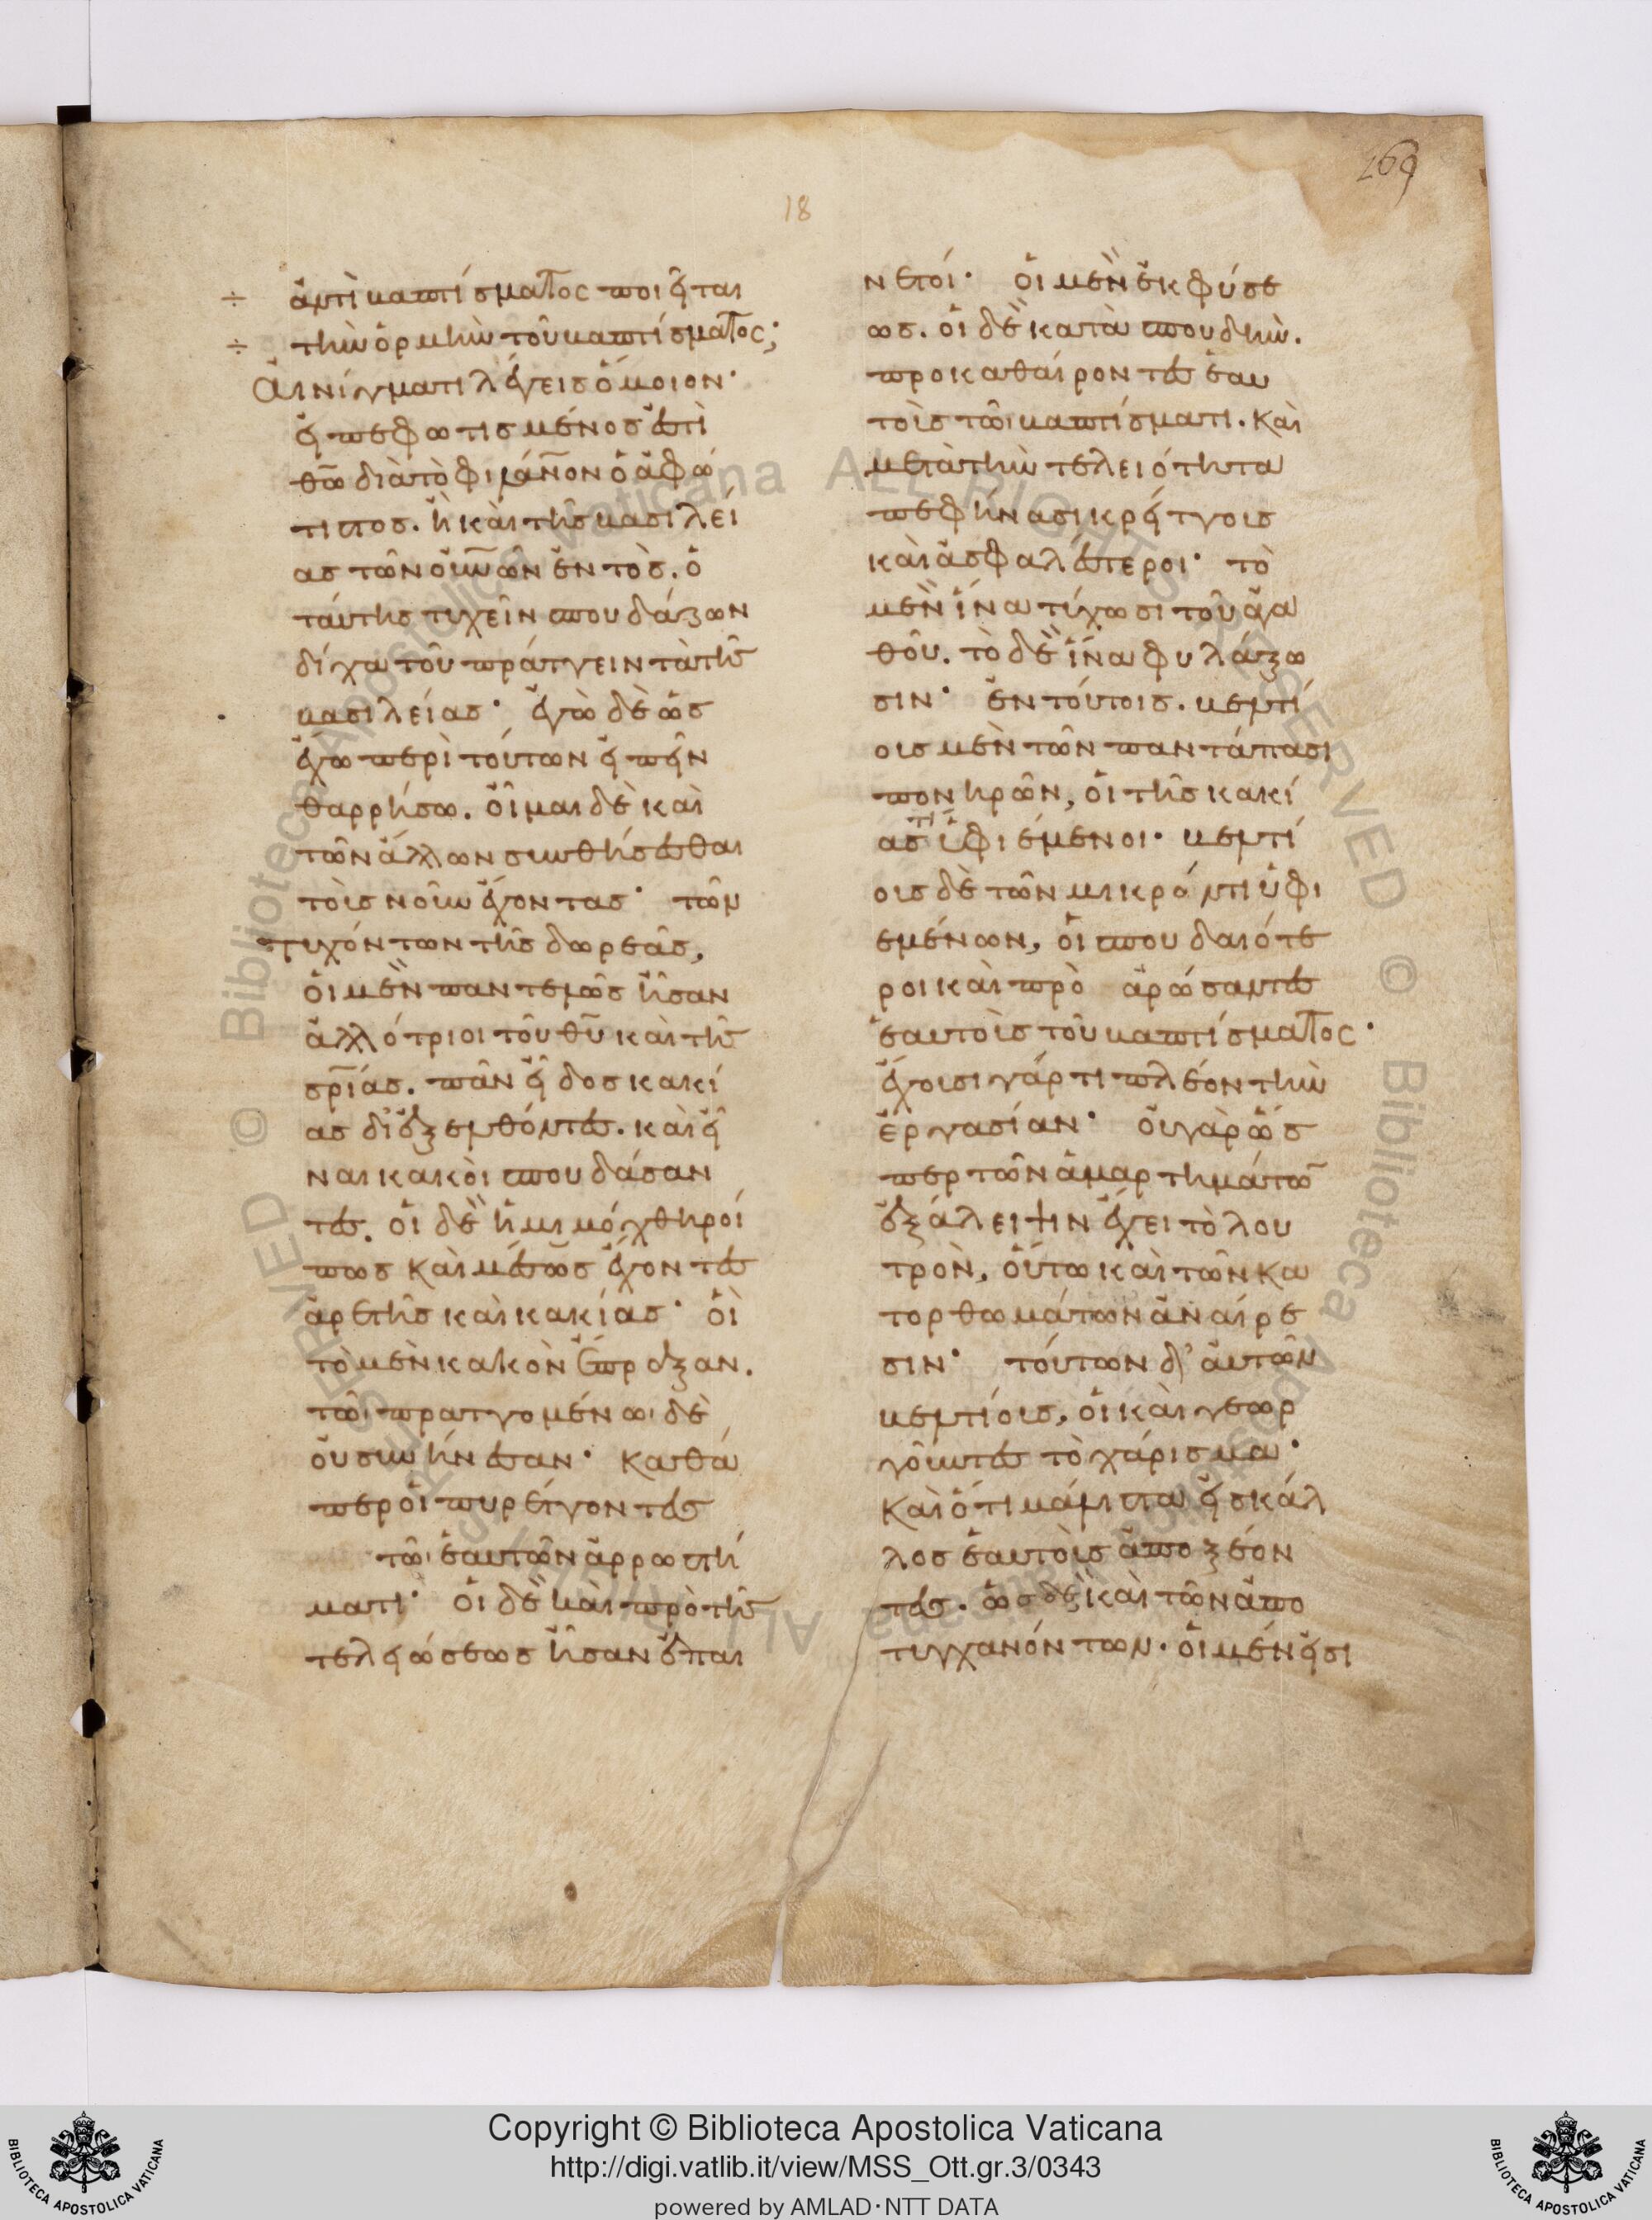 269
18
ἀντι βαπτίσματος ποιεῖται
τὴν ὁρμὴν τοῦ βαπτίσματος;
Αἰνίγματι λέγεις ὅμοιον·
εἰ πεφωτισμένος ἐστὶ
θ̅ω̅ διὰ τὸ φιλάν̅ο̅ν ὁ ἀφώ
τιστος. ἢ καὶ τῆς βασιλεί
ας τῶν οὐ̅ν̅ῶν ἐντὸς. ὁ
ταύτης τυχεῖν σπουδάζων
δίχα τοῦ πράττειν τὰ τῆς
βασιλείας· ἐγὼ δὲ ὡς
ἔχω περὶ τούτων εἰπεῖν
θαρρήσω. οἶμαι δὲ καὶ
τῶν ἄλλων συνθήσεσθαι
τοὺς νοῦν ἔχοντας· τῶν
τυχόντων τῆς δωρεᾶς,
οἱ μὲν παντελῶς ἦσαν
ἀλλότριοι τοῦ θ̅υ̅ καὶ τῆς
σ̅ρ̅ίας. πᾶν εἶδος κακί
ας διεξελθόντες. καὶ εἶ
ναι κακοὶ σπουδάσαν
τες. οἱ δὲ ἡμιμόχθηροί
πως καὶ μέσως ἔχοντες
ἀρετῆς καὶ κακίας· οἳ
τὸ μὲν κακὸν ἔπραξαν.
τῶι πραττομένωι δὲ
οὐ συνήνεσαν· καθά
περ οἱ πυρέττοντες
τῶι ἑαυτῶν ἀρρωστή
ματι· οἱ δὲ καὶ πρὸ τῆς
τελειώσεως ἦσαν ἐπαι
νετοί· οἱ μὲν ἐκ φύσε
ως. οἱ δὲ κατὰ σπουδὴν.
προκαθαίροντες ἑαυ
τοὺς τῶι βαπτίσματι. καὶ
μετὰ τὴν τελειότητα
πεφήνασι κρείττους
καὶ ἀσφαλέστεροι· τὸ
μὲν ἵνα τύχωσι τοῦ ἀγα
θοῦ. τὸ δὲ ἵνα φυλάξω
σιν· ἐν τούτοις. βελτί
ους μὲν τῶν παντάπασι
πονηρῶν, οἱ τῆς κακί
ας τι ὑφιέμενοι· βελτί
ους δὲ τῶν μικρόν τι ὑφι
εμένων, οἱ σπουδαιότε
ροι καὶ προ αρώσαντες
ἑαυτοὺς τοῦ βαπτίσματος·
ἔχουσι γάρ τι πλέον τὴν
ἐργασίαν· οὐ γὰρ ὥς
περ τῶν ἁμαρτημάτω̅
ἐξάλειψιν ἔχει τὸ λου
τρὸν, οὕτω καὶ τῶν κα
τορθωμάτων ἀναίρε
σιν· τούτων δ' αὐτῶν
βελτίους, οἱ καὶ γεωρ
γοῦντες τὸ χάρισμα·
καὶ ὅτι μάλιστα εἰς κάλ
λος ἑαυτοὺς ἀποξέον
τες. ὡς δὲ καὶ τῶν ἀπο
τυγχανόντων. οἱ μέν εἰσι
Copyright © Biblioteca Apostolica Vaticana
http://digi.vatlib.it/view/MSS_Ott.gr.3/0343
powered by AMLAD·NTT DATA